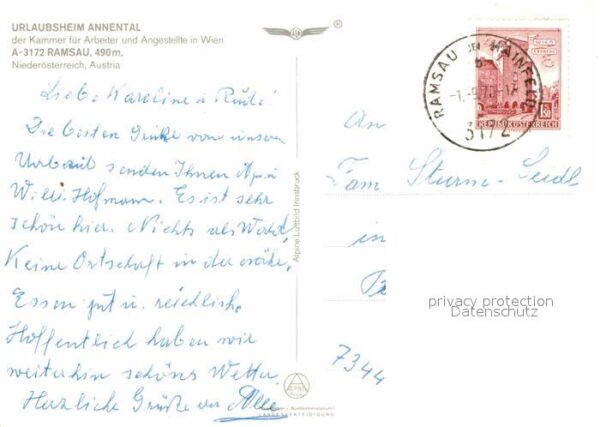 URLAUBSHEIM ANNENTAL
der Kammer für Arbeiter und Angestellte in Wien
A-3172 RAMSAU, 490 m,
Niederösterreich, Austria
®
Liebe Karoline u. Rudi!
Die besten Grüße von unserem
Urlaub senden Ihnen
Willi Hofmann. Es ist sehr
schön hier. Nichts als Wald,
Keine Ortschaft in der Nähe,
Essen gut u. reichlich.
Hoffentlich haben wir
weiterhin schönes Wetter.
Herzliche Grüße an Alle
Alpine Luftbild Innsbruck
LANDESVERTEIDIGUNG
RAMSAU BEI HAINFELD
3172
REPUBLIK ÖSTERREICH
An
Fam Sturm-Seidl
in
7344
privacy protection
Datenschutz